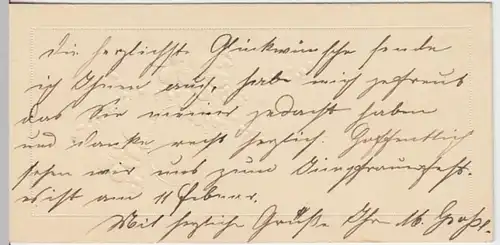 Die herzlichste Glückwünsche sende
ich Ihnen auch, habe mich gefreut
das Sie meiner gedacht haben
und danke recht herzlich. Hoffentlich
sehen wir uns zum Jungfrauenfest.
es ist am 11 Februar.
Mit herzliche Grüße Ihr M.